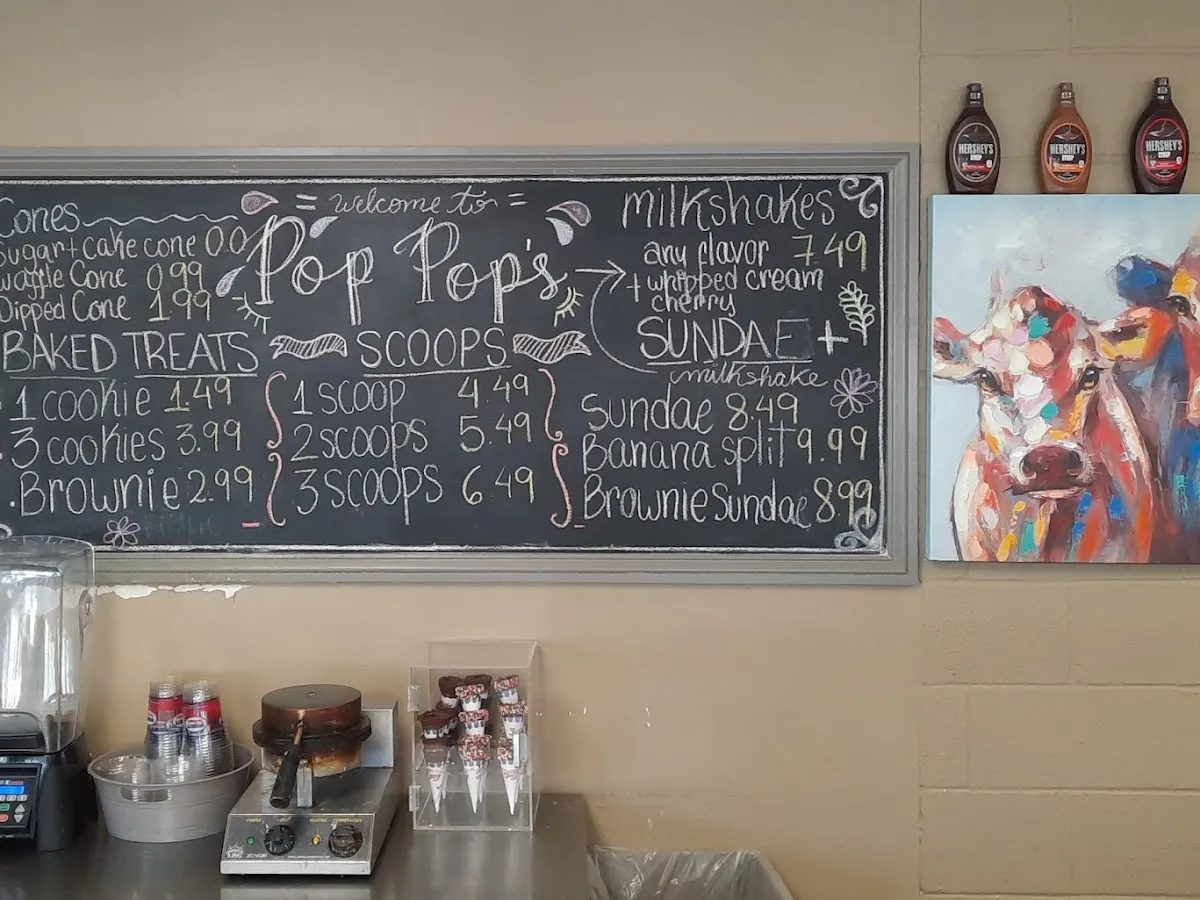 Cones
Sugar + cake cone 0.0
Waffle Cone 0.99
Dipped Cone 1.99
BAKED TREATS
1 cookie 1.49
3 cookies 3.99
Brownie 2.99
= welcome to =
Pop Pop's
SCOOPS
1 scoop 4.49
2 scoops 5.49
3 scoops 6.49
milkshakes
any flavor 7.49
+ whipped cream
cherry
SUNDAE +
milkshake
Sundae 8.49
Banana split 9.99
Brownie Sundae 8.99
HERSHEY'S
SYRUP
HERSHEY'S
SYRUP
HERSHEY'S
SYRUP
POWER
HEATING